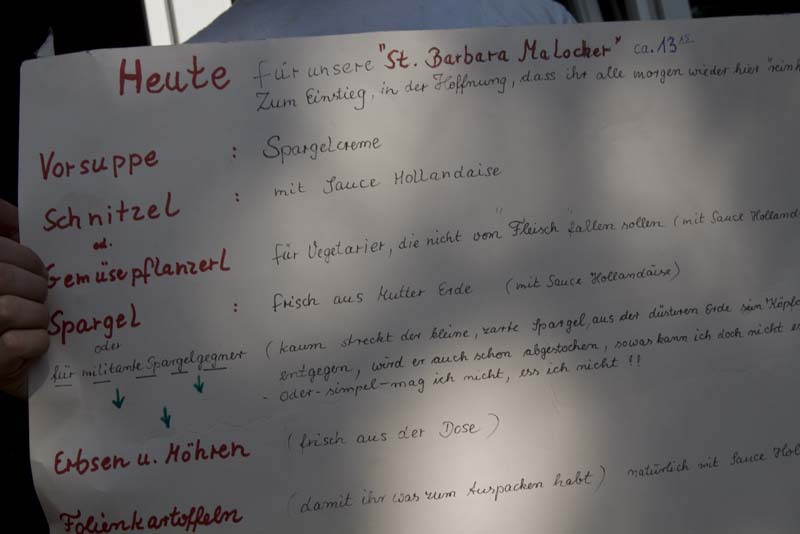 Heute für unsere "St. Barbara Malocher" ca. 13
Zum Einstieg, in der Hoffnung, dass ihr alle morgen wieder hier
Vorsuppe : Spargelcreme
Schnitzel : mit Sauce Hollandaise
od.
Gemüsepflanzerl für Vegetarier, die nicht vom "Fleisch" fallen sollen (mit Sauce
Spargel : frisch aus Mutter Erde (mit Sauce Hollandaise)
oder
für militante Spargelgegner (kaum streckt der kleine, zarte Spargel, aus der düsteren Erde sein
entgegen, wird er auch schon abgestochen, sowas kann ich doch nicht
- oder - simpel - mag ich nicht, ess ich nicht !!
Erbsen u. Möhren (frisch aus der Dose)
Folienkartoffeln (damit ihr was zum Auspacken habt) natürlich mit Sauce